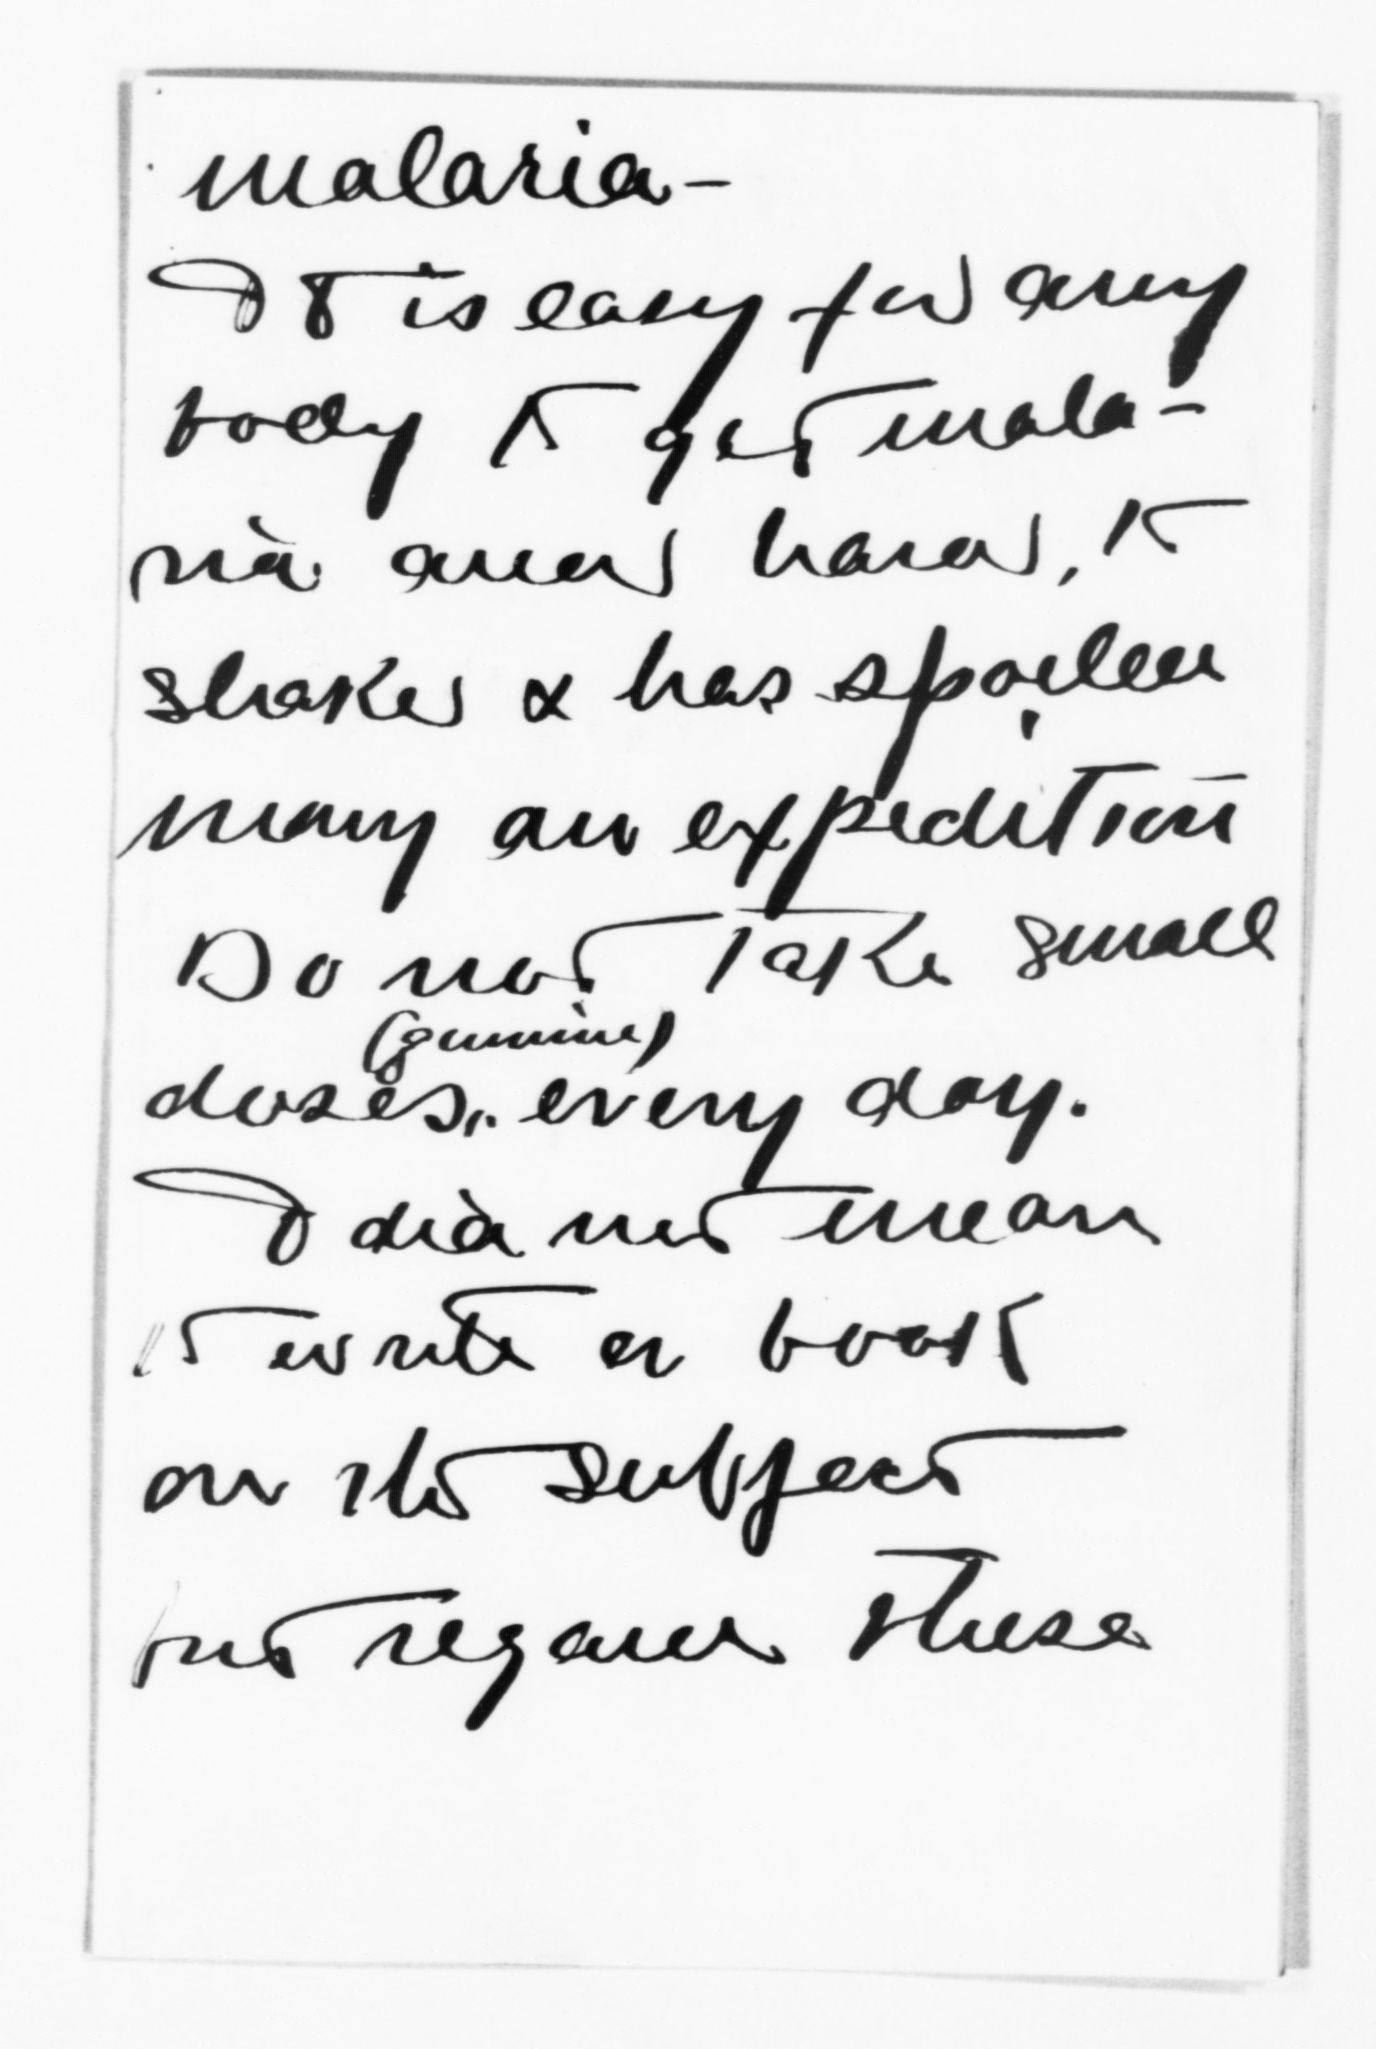 malaria -
It is easy for any
body to get mala-
ria and hard, to
shake & has spoiled
many an expedition
Do not Take small
(quinine)
doses,. every day.
I did not mean
to write a book
on the subject
but regard these